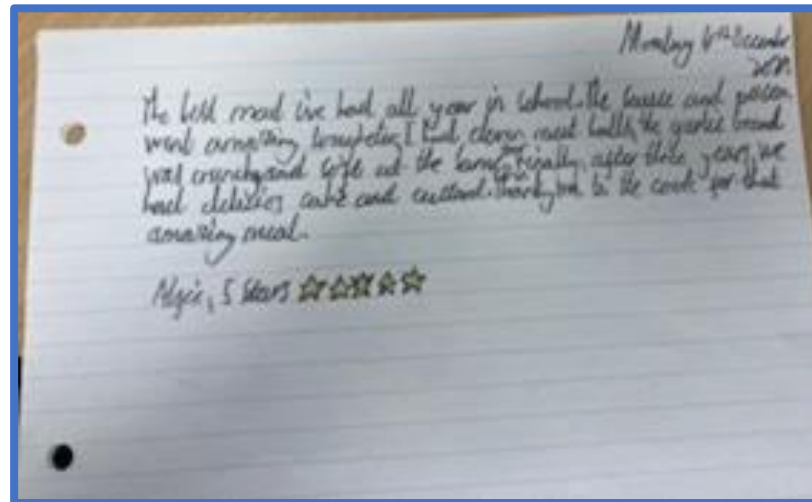 Monday 6th December
The best meal I've had all year in school. The sauce and
went amazing together, I had eleven meat balls, the garlic bread
was crunchy and soft at the same time. Finally, after three years, we
had delicious cake and custard. Thank you to the cook for that
amazing meal.
5 Stars ☆☆☆☆☆